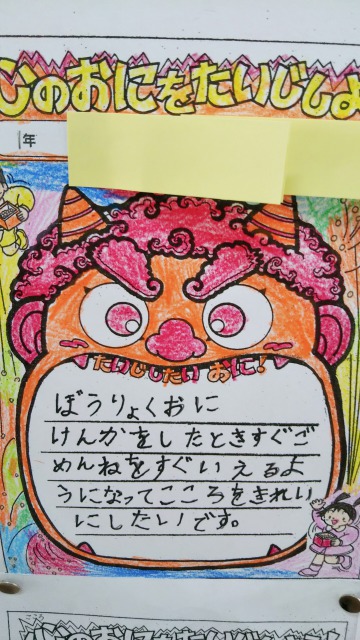 心のおにをたいじしよ
年
たいじしたい おに!
ぼうりょくおに
けんかをしたときすぐご
めんねをすぐいえるよ
うになってこころをきれい
にしたいです。